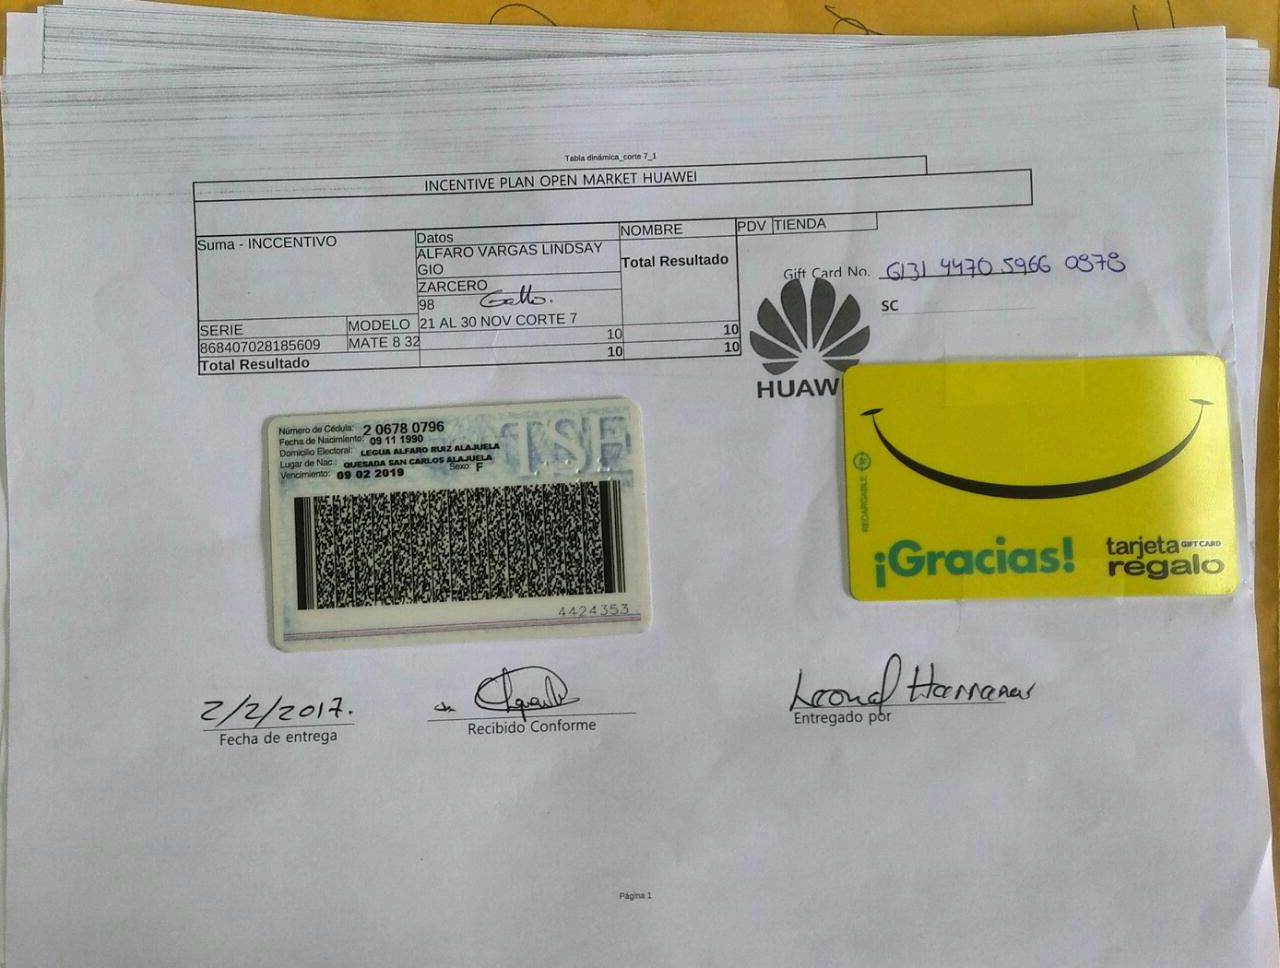 Tabla dinámica_corte 7_1
INCENTIVE PLAN OPEN MARKET HUAWEI
Suma - INCCENTIVO
Datos
NOMBRE
PDV TIENDA
ALFARO VARGAS LINDSAY
GIO
Total Resultado
ZARCERO
98
Gift Card No. 6131 4470 5966 0878
SC
SERIE
MODELO
21 AL 30 NOV CORTE 7
868407028185609
MATE 8 32
10
10
Total Resultado
10
10
HUAW
Número de Cédula: 2 0678 0796
Fecha de Nacimiento: 09 11 1990
Domicilio Electoral: LEGUA ALFARO RUIZ ALAJUELA
Lugar de Nac.: QUESADA SAN CARLOS ALAJUELA
Vencimiento: 09 02 2019 Sexo: F
TSE
4424353
RECARGABLE
¡Gracias!
tarjeta GIFT CARD
regalo
2/2/2017.
Fecha de entrega
Recibido Conforme
Entregado por
Página 1